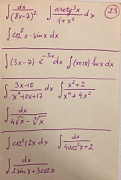 ∫ dx/(8x-7)² ∫ arctg³x/(1+x²) dx 23
∫ cos⁸x · sinx dx
∫ (3x-7) e^(-3x) dx ∫ (x+10) ln x dx
∫ (3x-10)/(x²-10x+17) dx ∫ (x²+2)/(x³+4x) dx
∫ dx/(4√x - ³√x)
∫ cos²12x dx ∫ dx/(4cos²x+2)
∫ dx/(2sinx+3cosx)